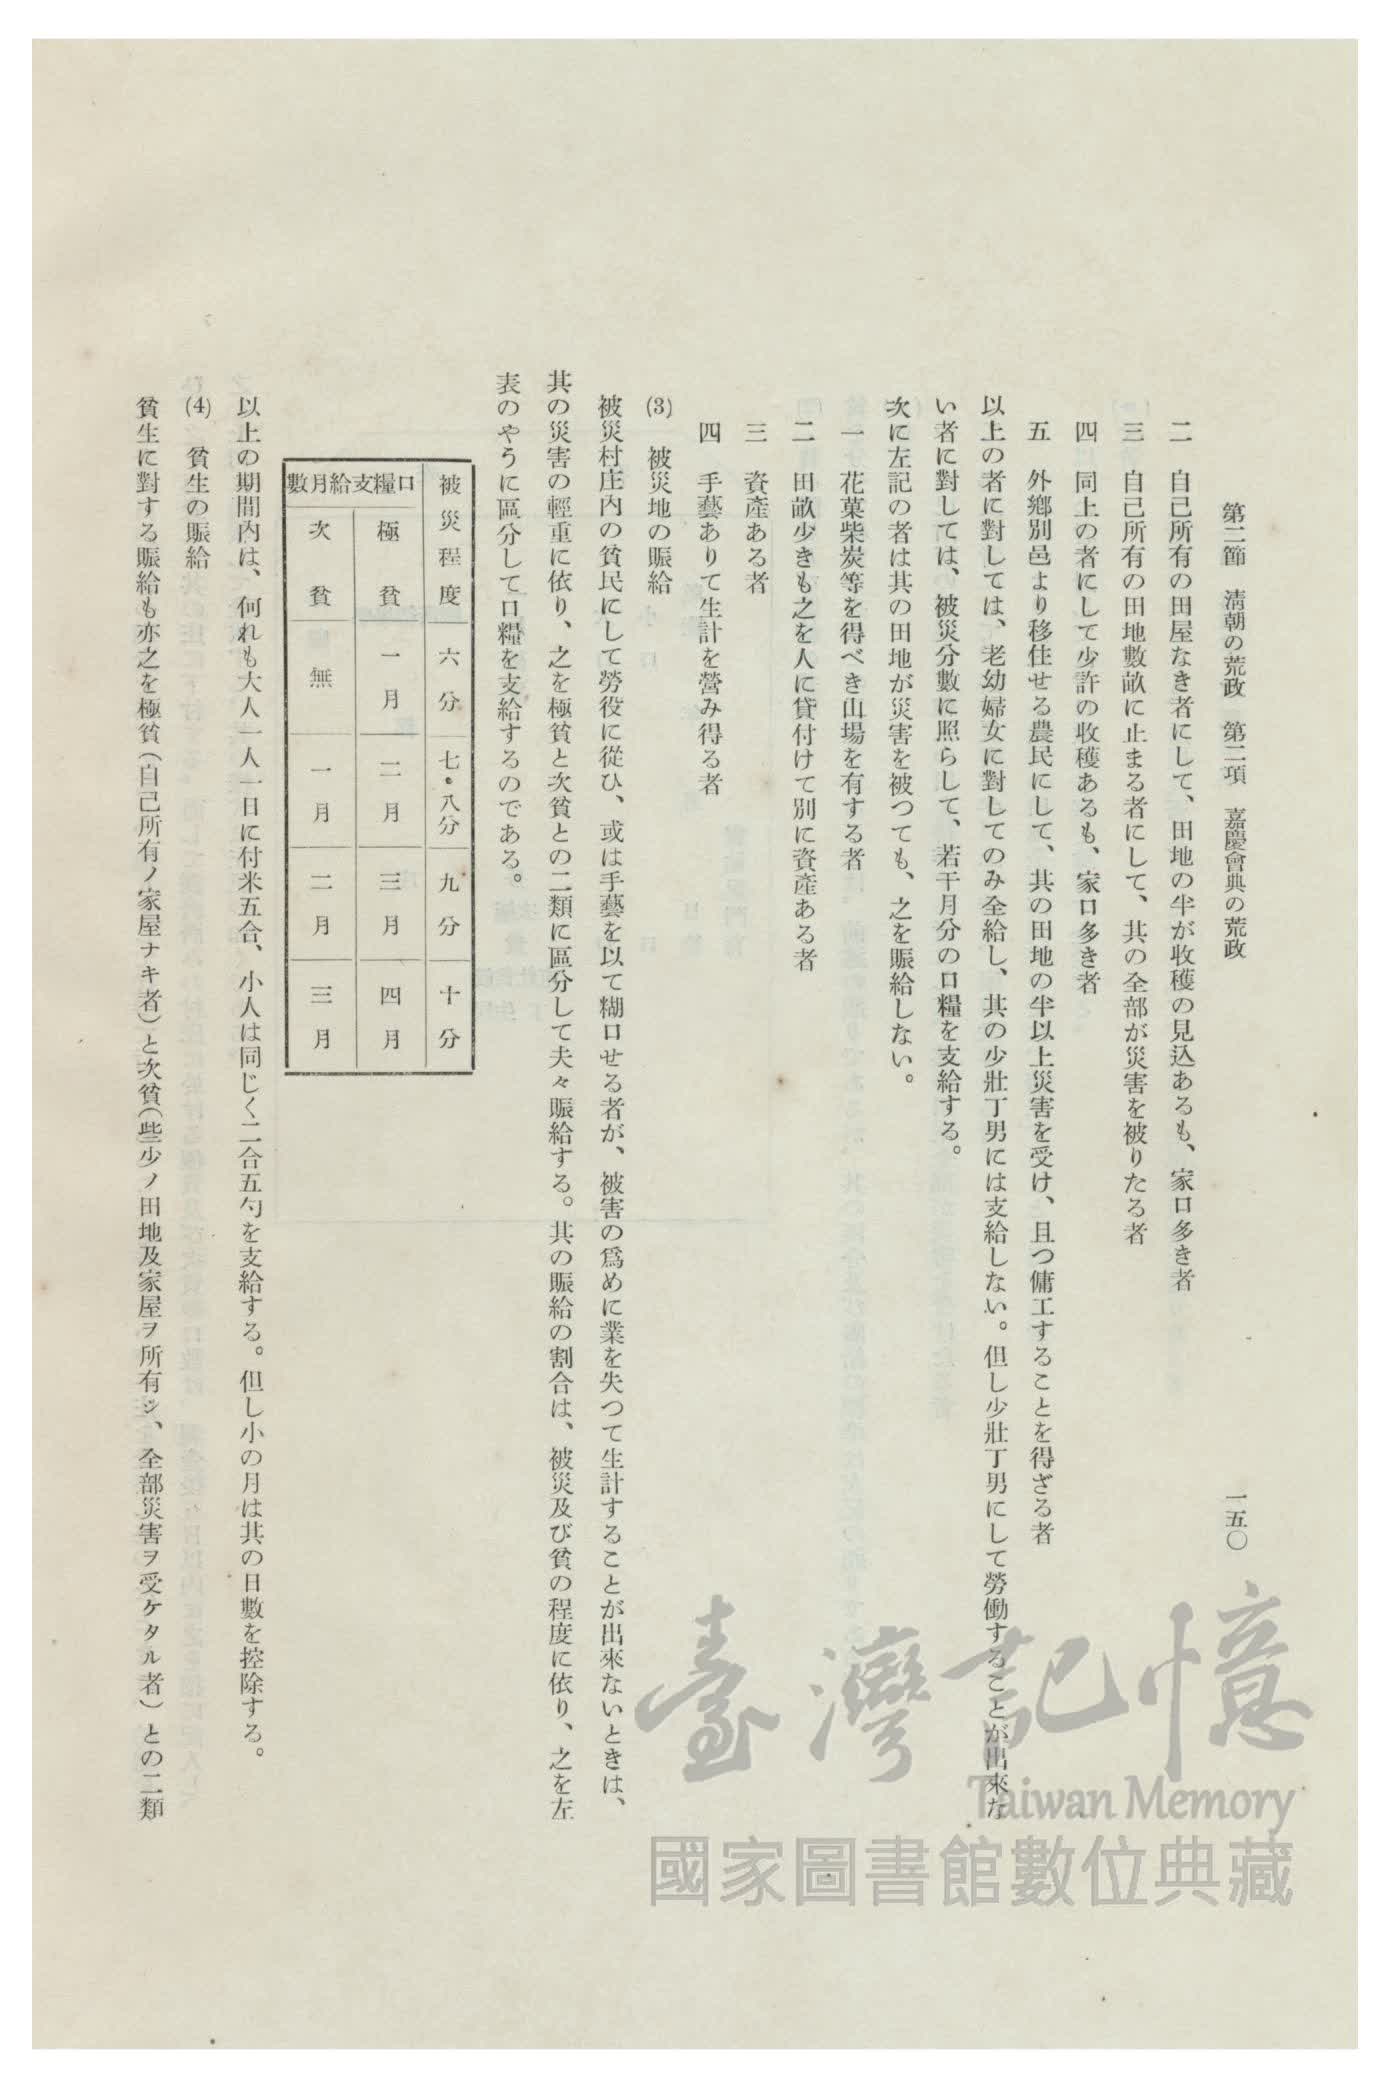 第二節　淸朝の荒政　第二項　嘉慶會典の荒政
一五〇
二　自己所有の田屋なき者にして、田地の半が收穫の見込あるも、家口多き者
三　自己所有の田地數畝に止まる者にして、其の全部が災害を被りたる者
四　同上の者にして少許の收穫あるも、家口多き者
五　外鄕別邑より移住せる農民にして、其の田地の半以上災害を受け、且つ傭工することを得ざる者
以上の者に對しては、老幼婦女に對してのみ全給し、其の少壯丁男には支給しない。但し少壯丁男にして勞働することが出來な
い者に對しては、被災分數に照らして、若干月分の口糧を支給する。
次に左記の者は其の田地が災害を被つても、之を賑給しない。
一　花菓柴炭等を得べき山場を有する者
二　田畝少きも之を人に貸付けて別に資產ある者
三　資產ある者
四　手藝ありて生計を營み得る者
(3)　被災地の賑給
被災村庄内の貧民にして勞役に從ひ、或は手藝を以て糊口せる者が、被害の爲めに業を失つて生計することが出來ないときは、
其の災害の輕重に依り、之を極貧と次貧との二類に區分して夫々賑給する。其の賑給の割合は、被災及び貧の程度に依り、之を左
表のやうに區分して口糧を支給するのである。
被災程度　六分　七・八分　九分　十分
口糧支給月數
極貧　一月　二月　三月　四月
次貧　無　一月　二月　三月
以上の期間内は、何れも大人一人一日に付米五合、小人は同じく二合五勺を支給する。但し小の月は其の日數を控除する。
(4)　貧生の賑給
貧生に對する賑給も亦之を極貧（自己所有ノ家屋ナキ者）と次貧（些少ノ田地及家屋ヲ所有シ、全部災害ヲ受ケタル者）との二類
臺灣記憶
Taiwan Memory
國家圖書館數位典藏